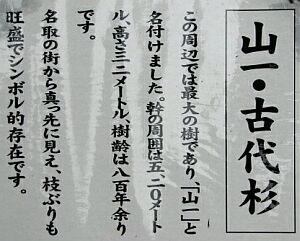 山一・古代杉
この周辺では最大の樹であり、「山一」と
名付けました。幹の周囲は五、二〇メート
ル、高さ三二メートル、樹齢は八百年余り
です。
名取の街から真っ先に見え、枝ぶりも
旺盛でシンボル的存在です。